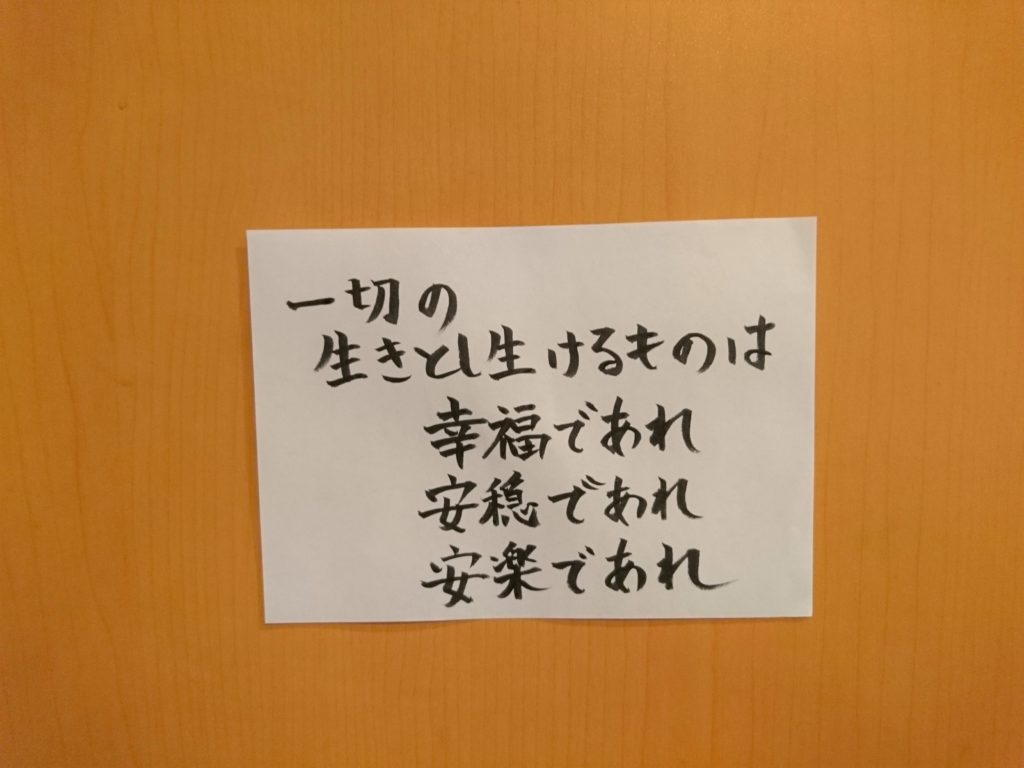 一切の
生きとし生けるものは
幸福であれ
安穏であれ
安楽であれ